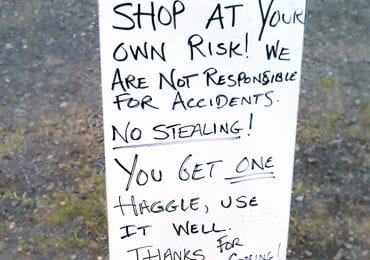 SHOP AT YOUR
OWN RISK! WE
ARE NOT RESPONSIBLE
FOR ACCIDENTS.
NO STEALING!
YOU GET ONE
HAGGLE, USE
IT WELL.
THANKS FOR